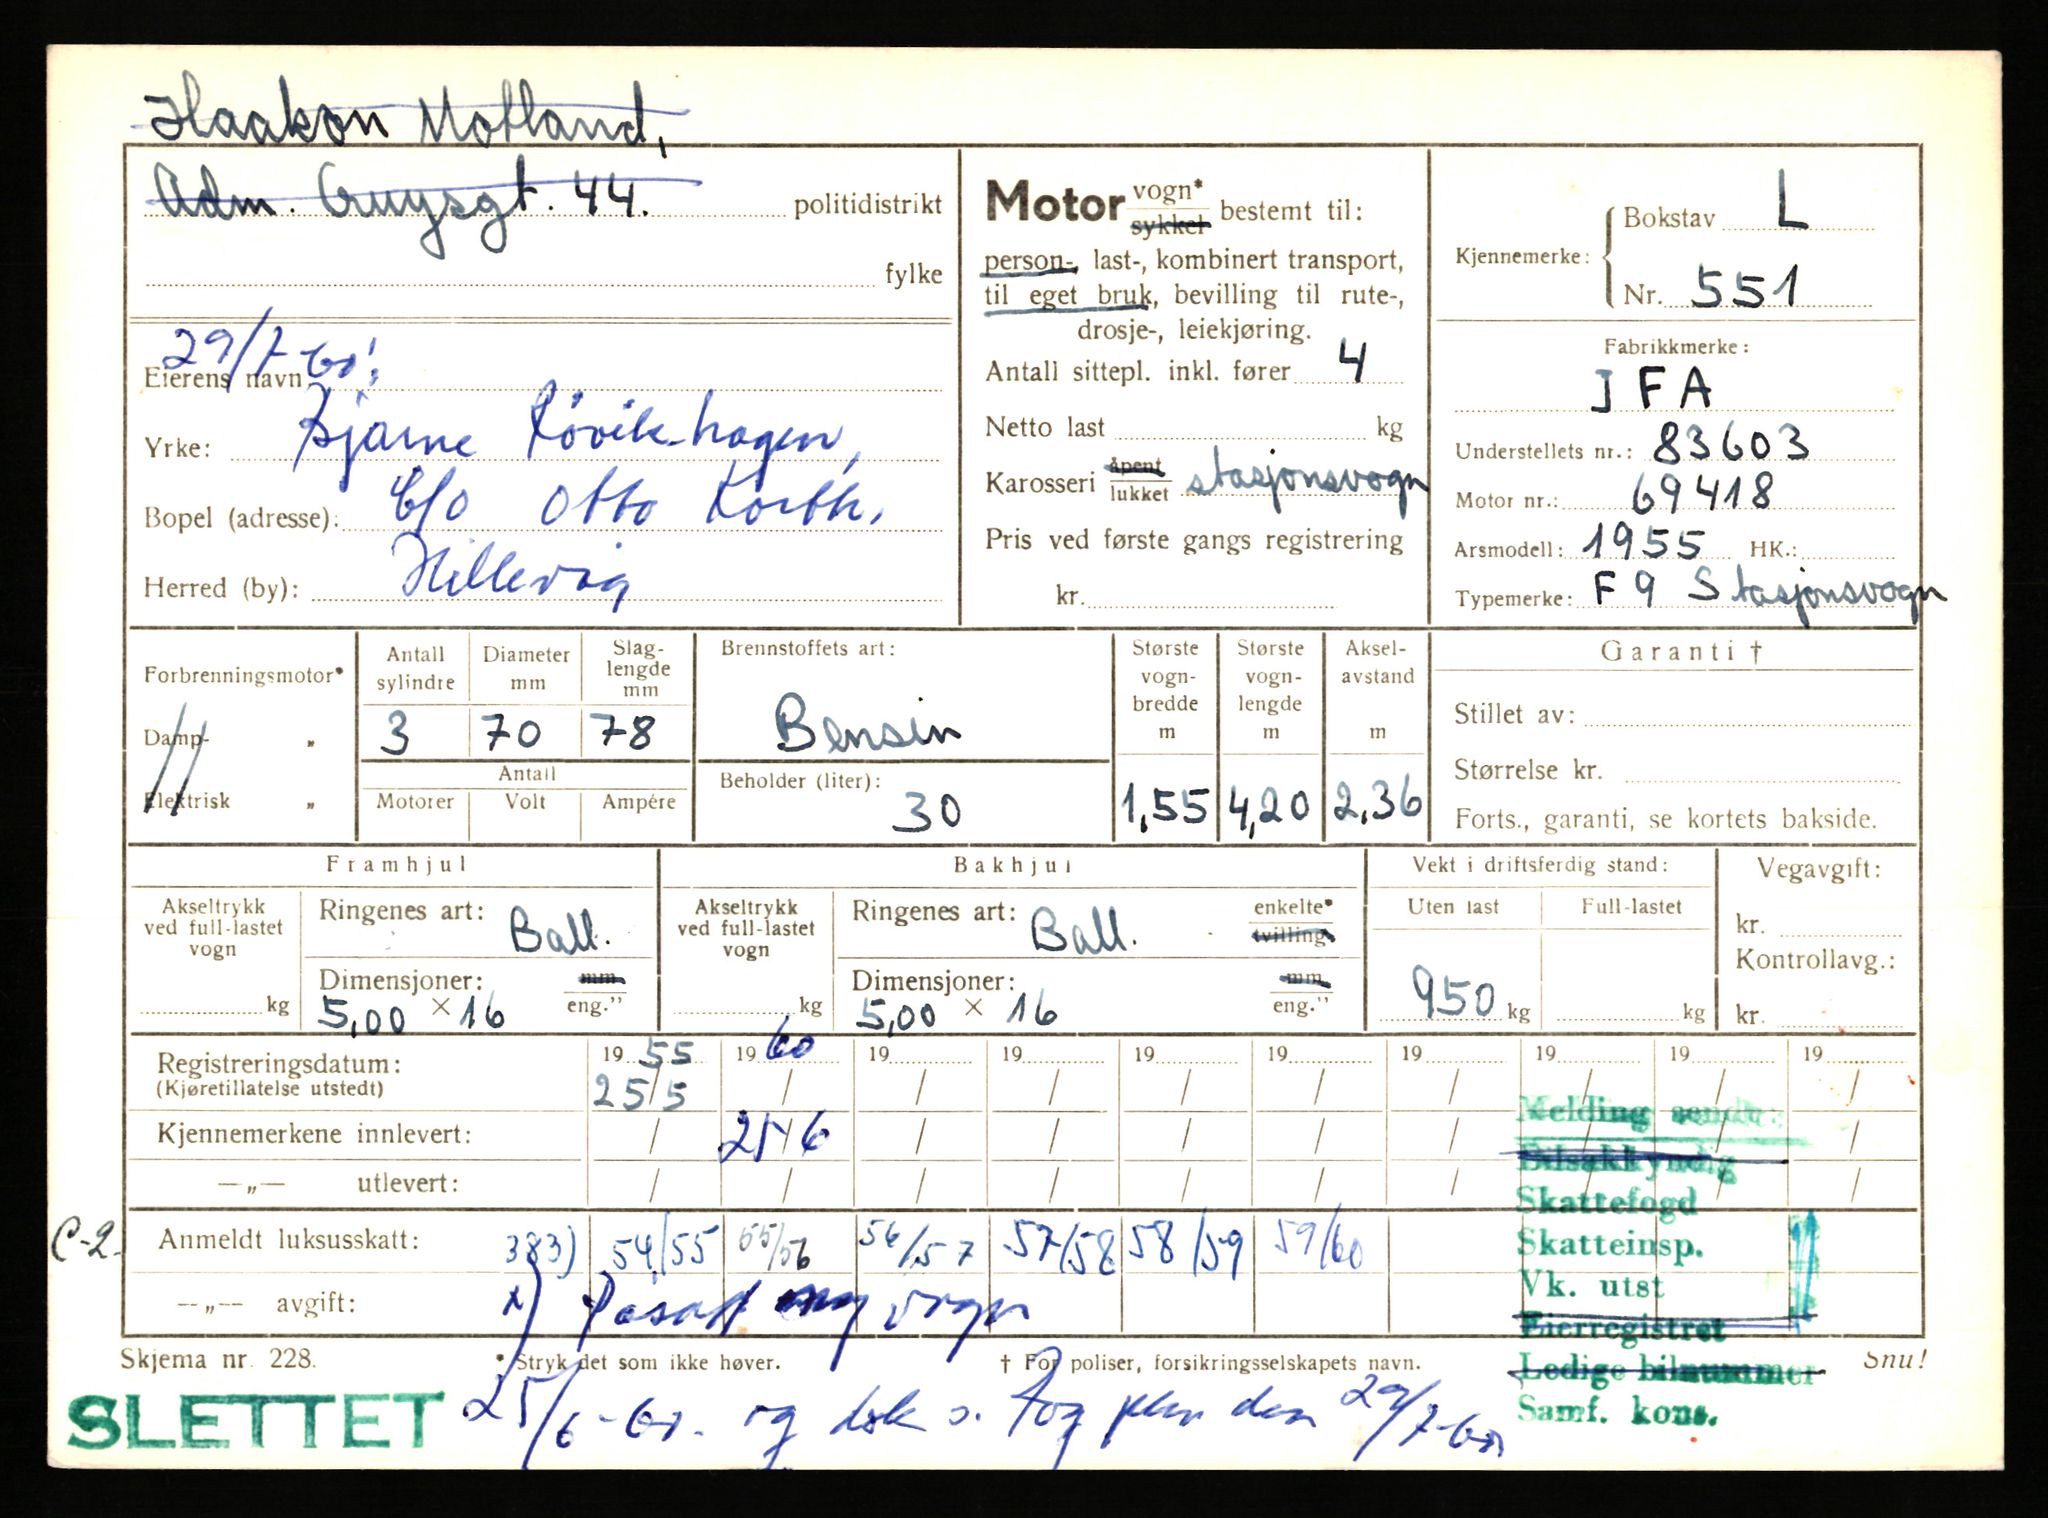 Haakon Motland,
Adm. Cruysgt. 44. politidistrikt
fylke
29/7-60:
Eierens navn
Yrke: Bjarne Røvik-hagen,
Bopel (adresse): C/o Otto Korth,
Herred (by): Hillevåg
Motor vogn* sykkel bestemt til:
person-, last-, kombinert transport,
til eget bruk, bevilling til rute-,
drosje-, leiekjøring.
Antall sittepl. inkl. fører 4
Netto last kg
Karosseri åpent lukket stasjonsvogn
Pris ved første gangs registrering
kr.
Kjennemerke: Bokstav L
Nr. 551
Fabrikkmerke:
IFA
Understellets nr.: 83603
Motor nr.: 69418
Årsmodell: 1955 HK.:
Typemerke: F9 Stasjonsvogn
Forbrenningsmotor*
Damp- „
Elektrisk „
Antall sylindre 3
Diameter mm 70
Slag-lengde mm 78
Antall
Motorer Volt Ampére
Brennstoffets art:
Bensin
Beholder (liter):
30
Største vogn-bredde m 1,55
Største vogn-lengde m 4,20
Aksel-avstand m 2,36
Garanti †
Stillet av:
Størrelse kr.
Forts., garanti, se kortets bakside.
Framhjul
Akseltrykk ved full-lastet vogn kg
Ringenes art: Ball.
Dimensjoner: mm eng."
5,00 × 16
Bakhjul
Akseltrykk ved full-lastet vogn kg
Ringenes art: Ball. enkelte* tvilling
Dimensjoner: mm eng."
5,00 × 16
Vekt i driftsferdig stand:
Uten last Full-lastet
950 kg kg
Vegavgift:
kr.
Kontrollavg.:
kr.
Registreringsdatum: 19 55 19 60 19 19 19 19 19 19 19 19
(Kjøretillatelse utstedt) 25/5 / / / / / / / / /
Kjennemerkene innlevert: / 25/6 / / / / / / / /
—„— utlevert: / / / / / / / / / /
C-2. Anmeldt luksusskatt: 383) 54/55 55/56 56/57 57/58 58/59 59/60
—„— avgift: x) vogn
Melding sendt:
Bilsakkyndig
Skattefogd
Skatteinsp.
Vk. utst
Eierregistret
Ledige bilnummer
Samf. kons.
Skjema nr. 228. * Stryk det som ikke høver. † For poliser, forsikringsselskapets navn. Snu!
SLETTET 25/6-60. og den 29/7-60